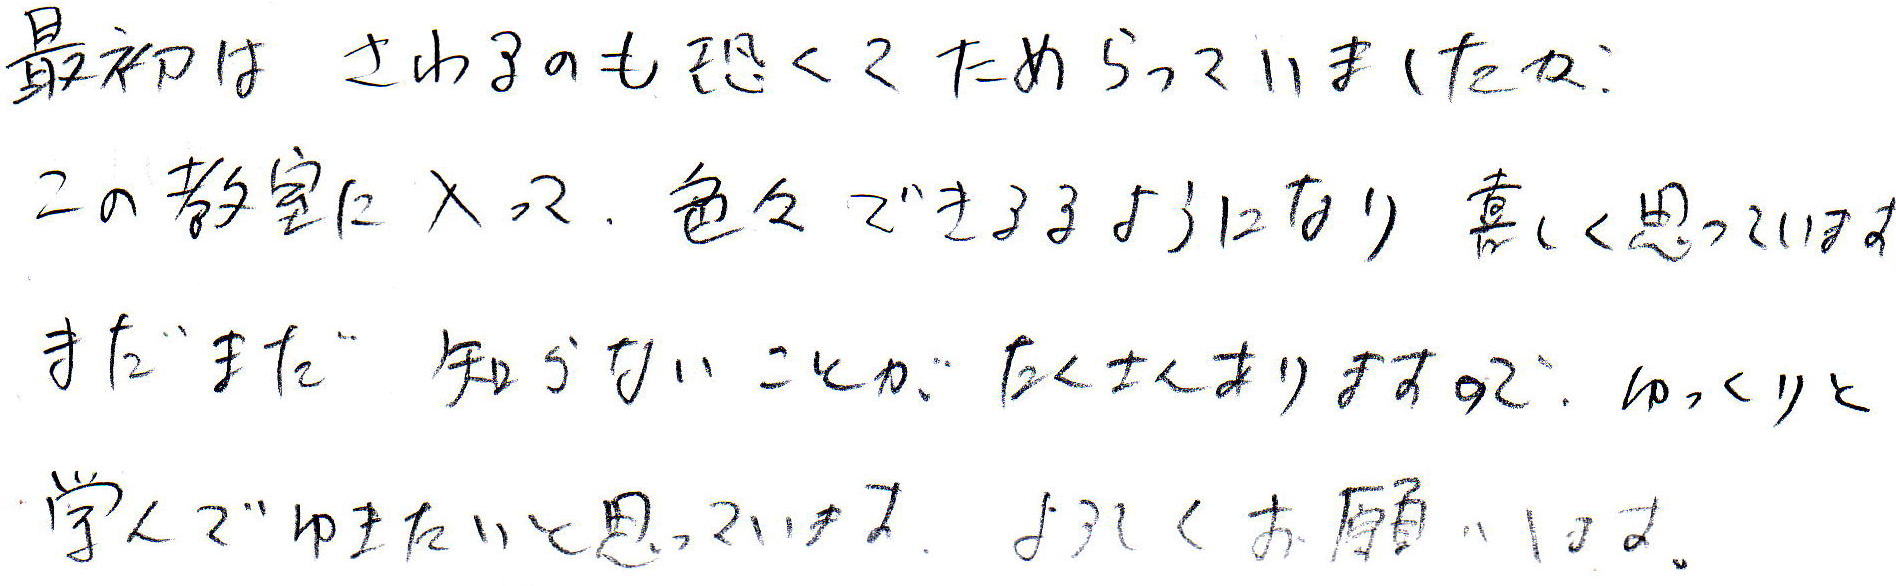 最初は さわるのも恐くて ためらっていましたが、
この教室に入って、色々できるるようになり 喜しく思っています
まだまだ 知らないことが、たくさんありますので、ゆっくりと
学んでゆきたいと思っています、よろしくお願いします。